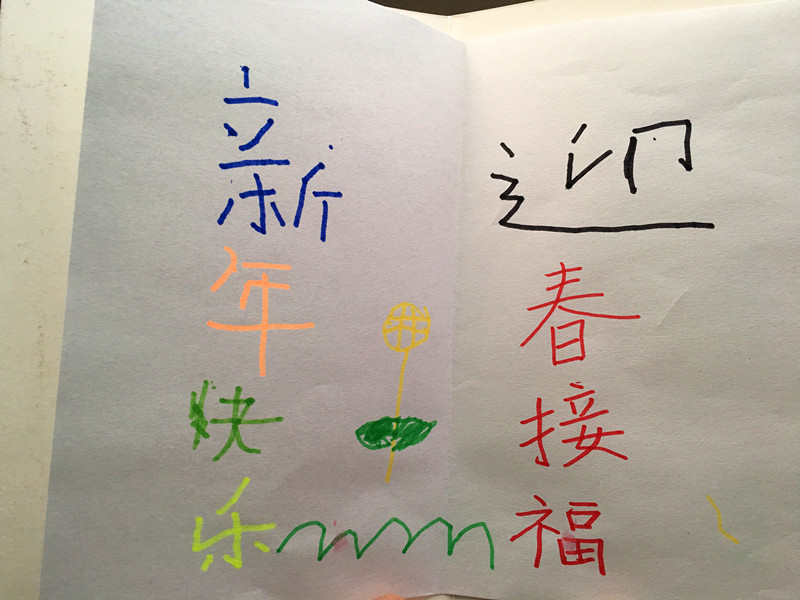 新年快乐
迎春接福